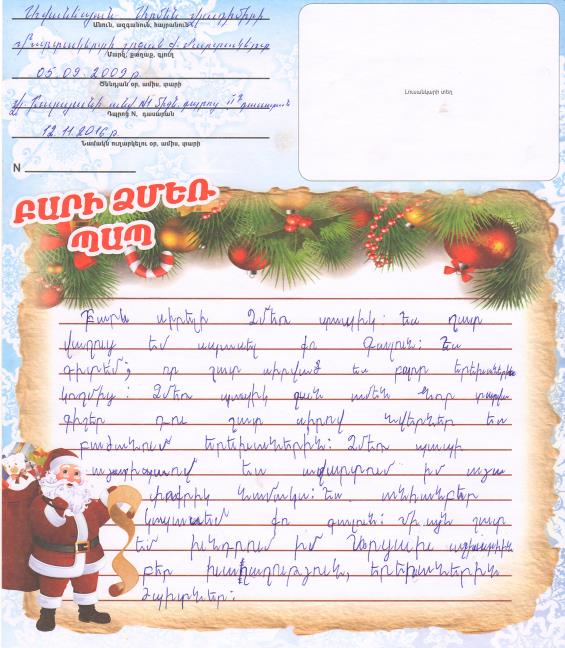 Անուն, ազգանուն, հայրանուն
Մարզ, քաղաք, գյուղ
05.09.2009թ.
Ծննդյան օր, ամիս, տարի
Դպրոց N, դասարան
12.11.2016թ.
Նամակն ուղարկելու օր, ամիս, տարի
N
Լուսանկարի տեղ
ԲԱՐԻ ՁՄԵՌ
ՊԱՊ
Բարև սիրելի Ձմեռ պապիկ: Ես շատ
վաղուց եմ սպասել քո գալուն: Ես
գիտեմ, որ շատ սիրված ես բոլոր երեխաների
կողմից: Ձմեռ պապիկ ջան ամեն նոր տարվա
գիշեր դու շատ սիրով նվերներ ես
բաժանում երեխաներին: Ձմեռ պապի
ես ավարտում իմ այս
փոքրիկ նամակս: Ես անհամբեր
կսպասեմ քո գալուն: Մի այն շատ
եմ խնդրում իմ
բեր խաղաղություն, երեխաներին
ժպիտներ: